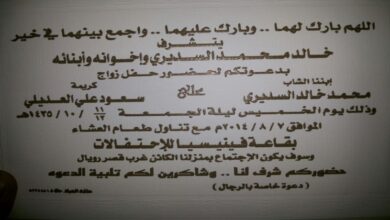 اللهم بارك لهما .. وبارك عليهما .. واجمع بينهما في خير
يتشرف
خالد محمد السديري وإخوانه وأبنائه
بدعوتكم لحضور حفل زواج
إبننا الشاب
كريمة
محمد خالد السديري
على
سعود علي العديلي
وذلك يوم الخميس ليلة الجمعة ١١/١٢ / ١٠ / ١٤٣٥هـ
الموافق ٧ / ٨ / ٢٠١٤م مع تناول طعام العشاء
بقاعة فينيسيا للإحتفالات
وسوف يكون الإجتماع بمنزلنا الكائن غرب قصر رويال
حضوركم شرف لنا .. وشاكرين لكم تلبية الدعوه
( دعوة خاصة بالرجال )